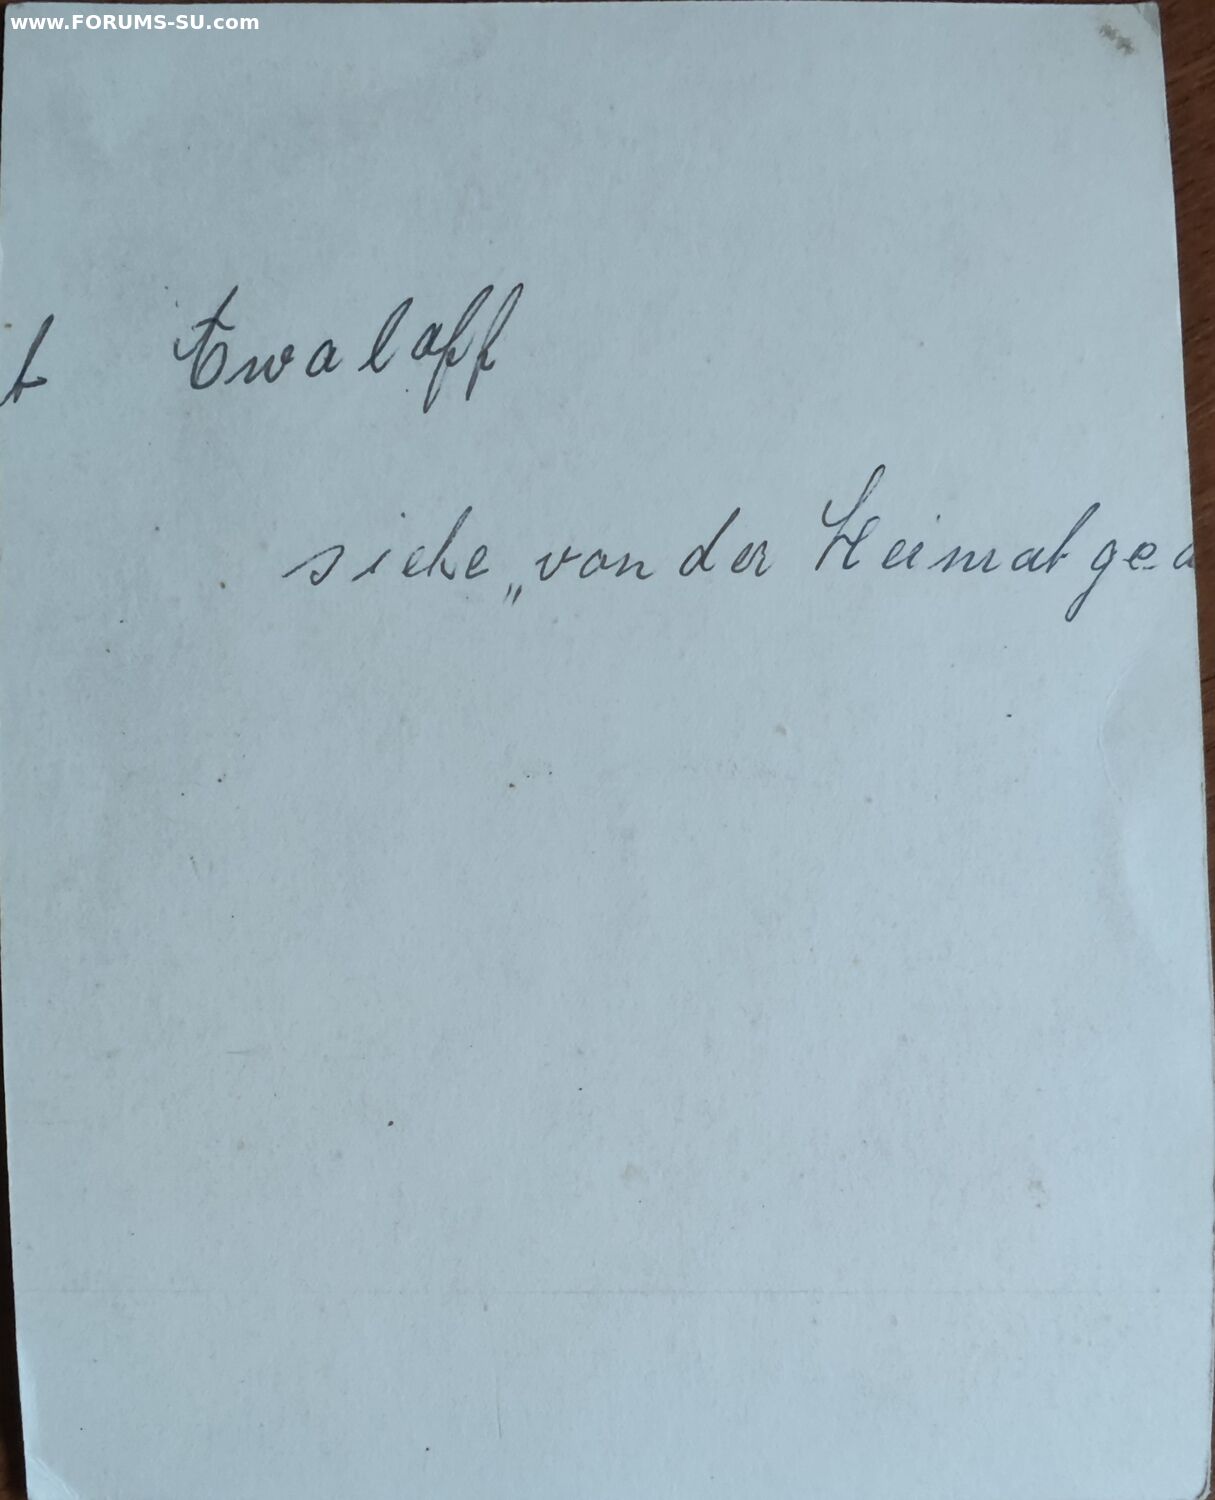 www.FORUMS-SU.com
t Ewaloff
siehe „von der Heimat gea